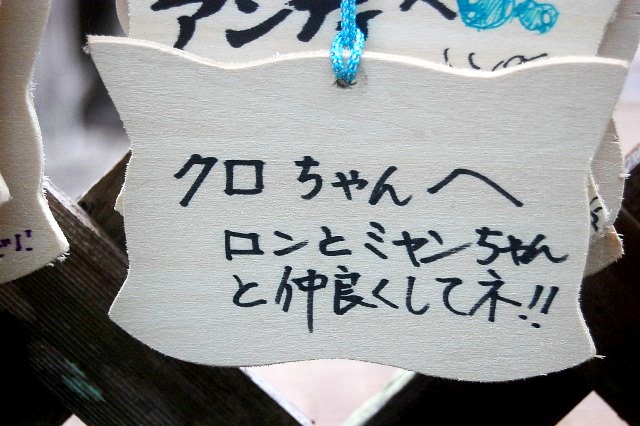 アンディへ
クロちゃんへ
ロンとミャンちゃん
と仲良くしてネ!!